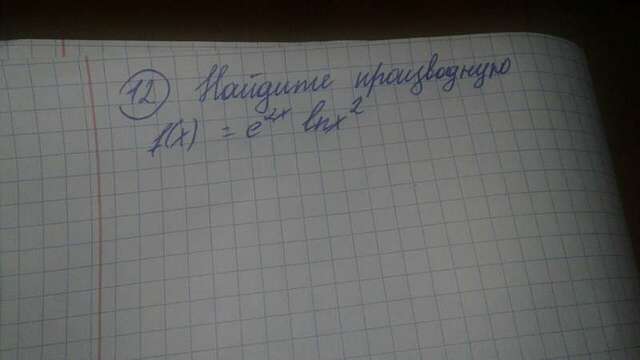 12 Найдите производную
f(x) = e^2x lnx^2